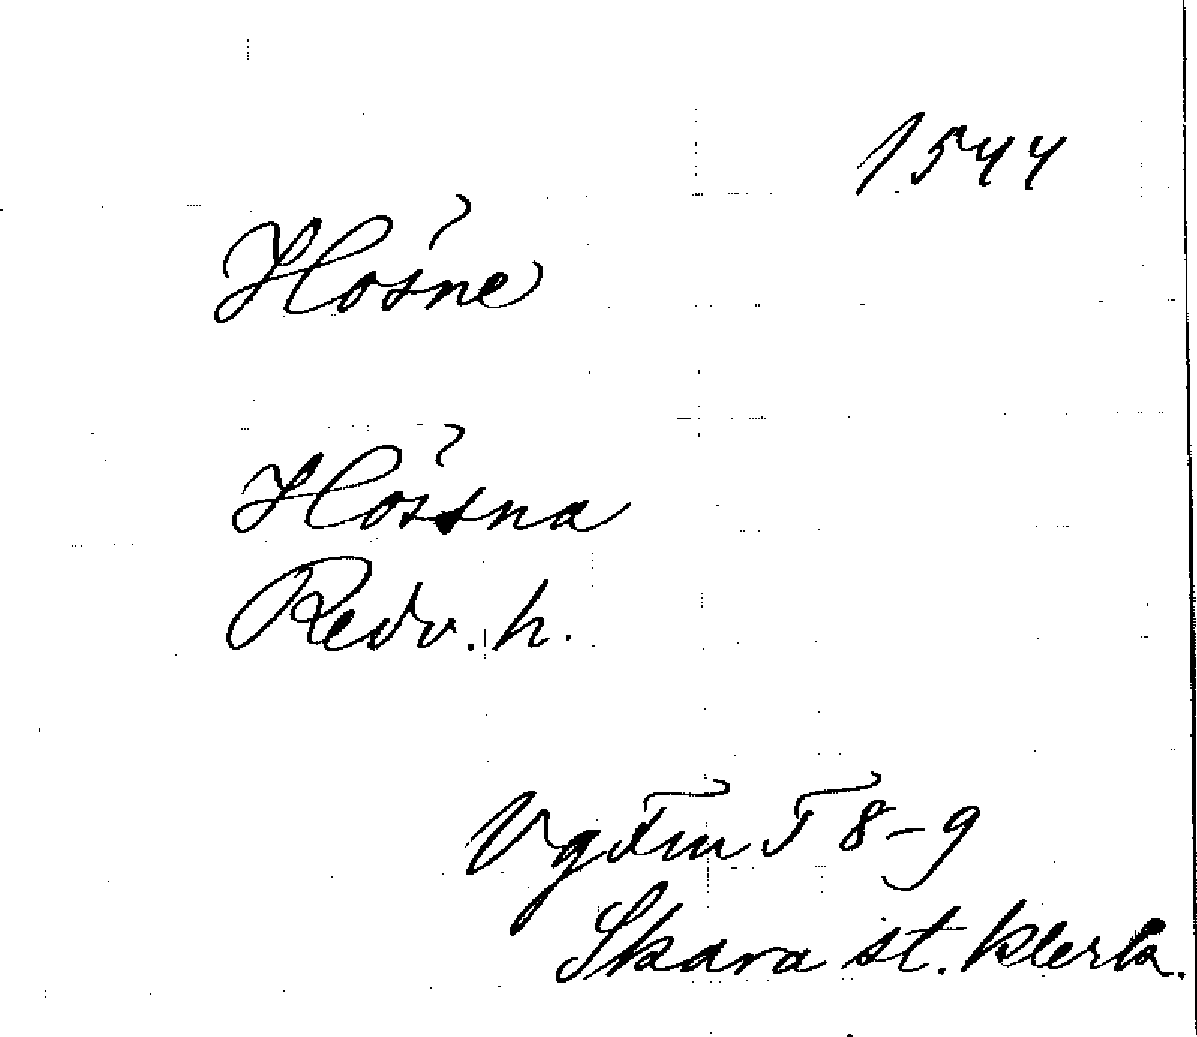 1544
Hösne
Hössna
Redv. h.
Vg Fm F 8-9
Skara st. klerk.